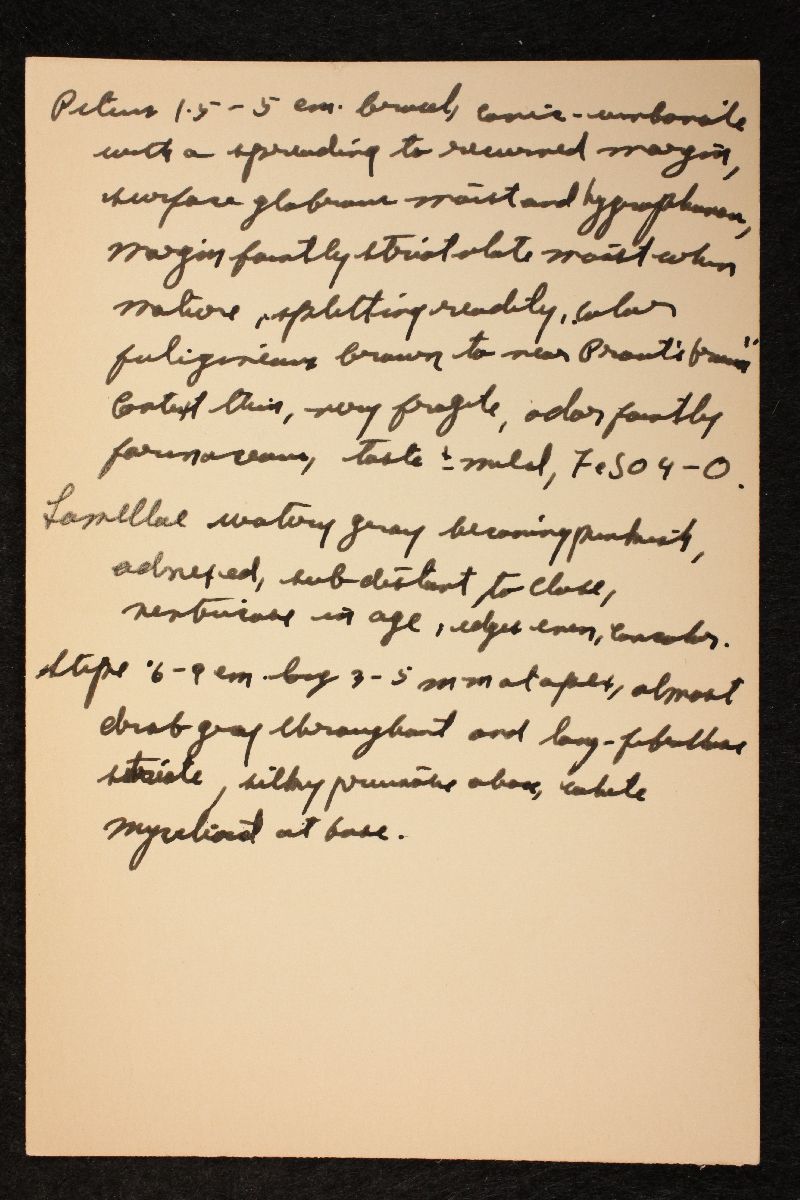 Pileus 1.5 - 5 cm. broad, conic-umbonate
with a spreading to recurved margin,
surface glabrous moist and hygrophanous,
margin faintly striatulate moist when
mature, splitting readily, color
fuliginious brown to near Prout's brown"
Context thin, very fragile, odor faintly
farinaceous, taste ± mild, FeSO4 - O.
Lamellae watery gray becoming pinkish,
adnexed, sub-distant to close,
ventricose in age, edges even, concolor.
Stipe 6-9 cm. long 3-5 mm at apex, almost
drab gray throughout and long-fibrillose
striate, silky pruinose above, white
mycelioid at base.